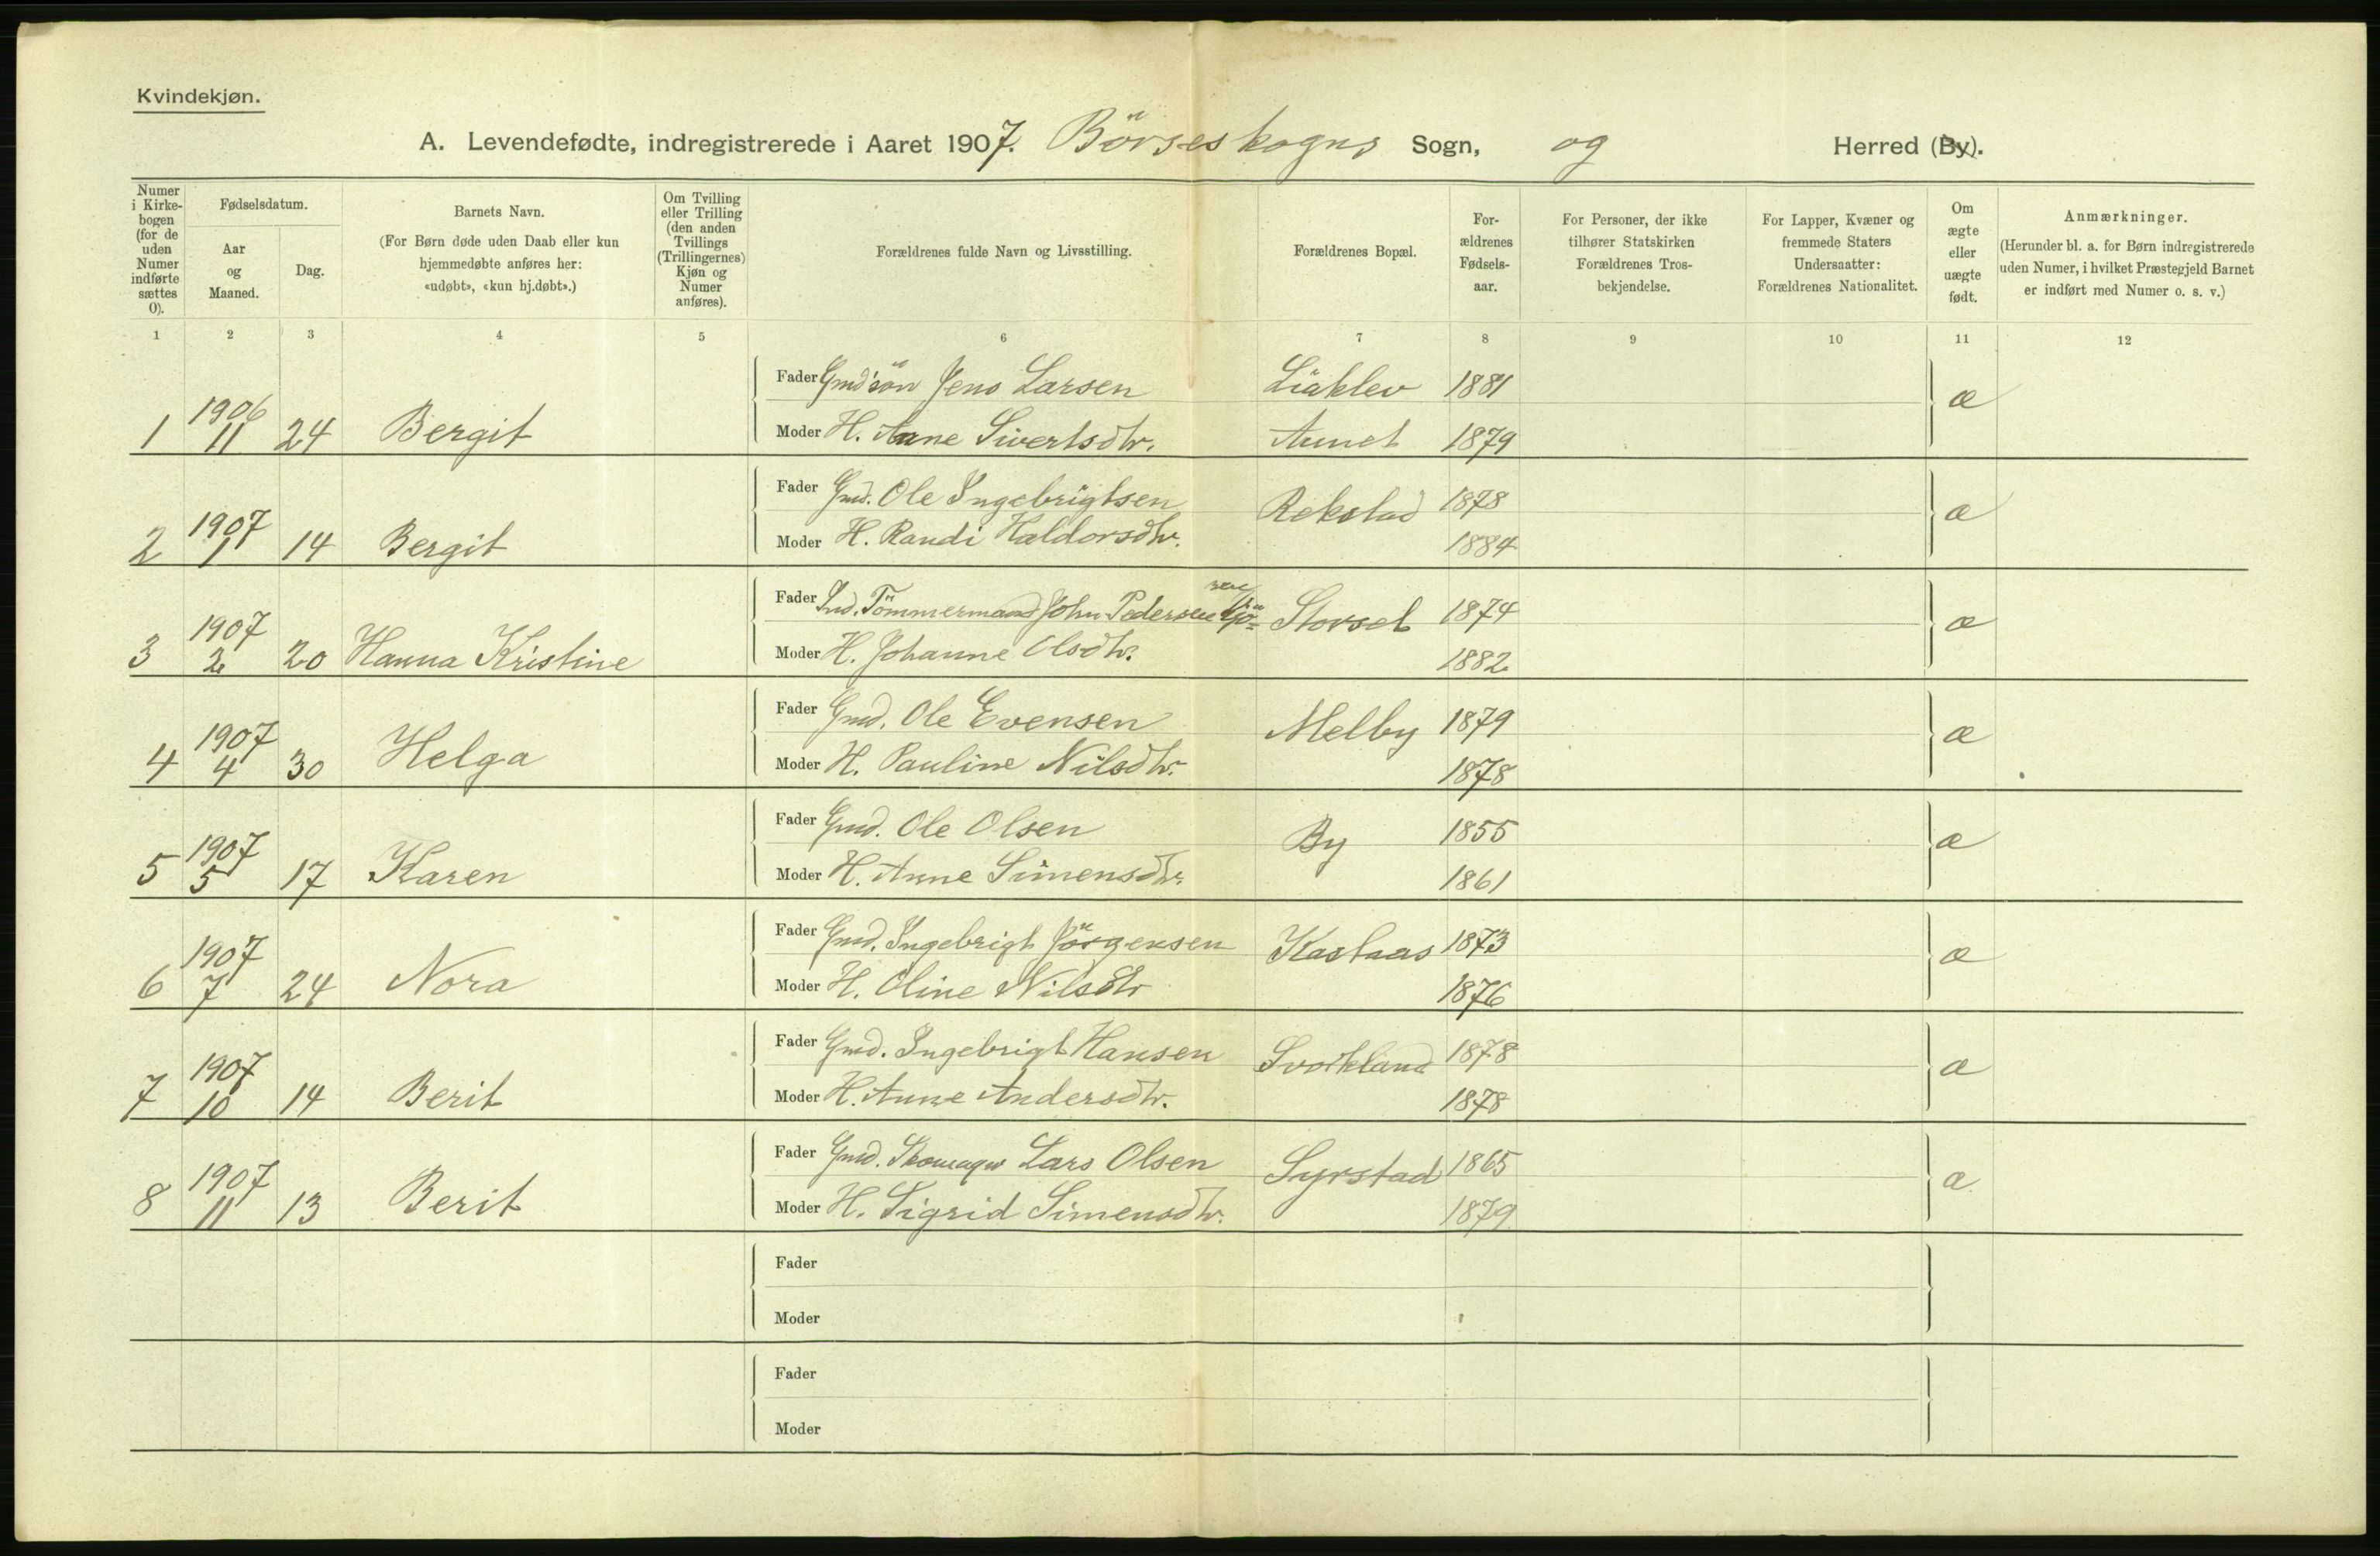 Kvindekjøn.
A. Levendefødte, indregistrerede i Aaret 1907. Börseskogns Sogn, og Herred (By).
Numer i Kirkebogen (for de uden Numer indførte sættes 0).
Fødselsdatum.
Aar og Maaned.
Dag.
Barnets Navn.
(For Børn døde uden Daab eller kun hjemmedøbte anføres her: «udøbt», «kun hj.døbt».)
Om Tvilling eller Trilling (den anden Tvillings (Trillingernes) Kjøn og Numer anføres).
Forældrenes fulde Navn og Livsstilling.
Forældrenes Bopæl.
Forældrenes Fødselsaar.
For Personer, der ikke tilhører Statskirken Forældrenes Trosbekjendelse.
For Lapper, Kvæner og fremmede Staters Undersaatter: Forældrenes Nationalitet.
Om ægte eller uægte født.
Anmærkninger.
(Herunder bl. a. for Børn indregistrerede uden Numer, i hvilket Præstegjeld Barnet er indført med Numer o. s. v.)
1 2 3 4 5 6 7 8 9 10 11 12
Fader Gmdsön Jens Larsen Liaklev 1881 æ
1 1906 11 24 Bergit Moder H. Anne Sivertsdtr. Aunet 1879
Fader Gmd. Ole Ingebrigtsen Rekstad 1878 æ
2 1907 1 14 Bergit Moder H. Randi Haldorsdtr. 1884
Fader Ind. Tömmermand John Pedersen Storset 1874 æ
3 1907 2 20 Hanna Kristine Moder H. Johanne Olsdtr. 1882
Fader Gmd. Ole Evensen Melby 1879 æ
4 1907 4 30 Helga Moder H. Pauline Nilsdtr. 1878
Fader Gmd. Ole Olsen By 1855 æ
5 1907 5 17 Karen Moder H. Anne Simensdtr. 1861
Fader Gmd. Ingebrigt Jörgensen Kastaas 1873 æ
6 1907 7 24 Nora Moder H. Oline Nilsdtr 1876
Fader Gmd. Ingebrigt Hansen Svorkland 1878 æ
7 1907 10 14 Berit Moder H. Anne Andersdtr. 1878
Fader Gmd. Skomager Lars Olsen Syrstad 1865 æ
8 1907 11 13 Berit Moder H. Sigrid Simensdtr. 1879
Fader
Moder
Fader
Moder